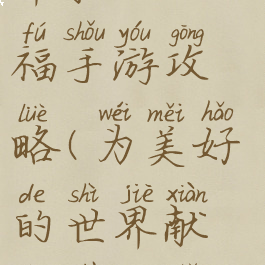 fú shǒu yóu gōng
福手游攻
lüè wéi měi hǎo
略(为美好
de shì jiè xiàn
的世界献